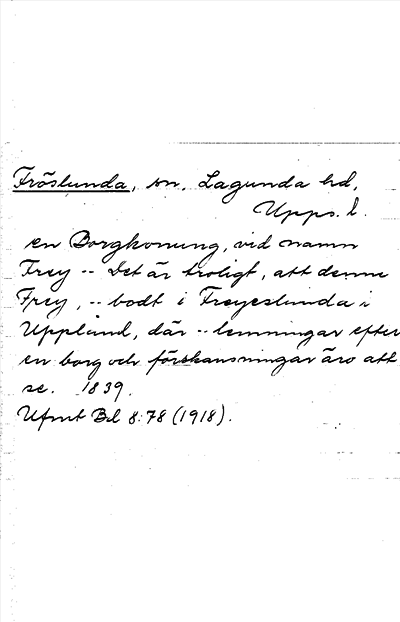 Fröslunda, sn, Lagunda hd,
Upps. l.
en Borgkonung, vid namn
Frey -- Det är troligt, att denne
Frey, -- bodt i Freyeslunda i
Uppland, där -- lemningar efter
en borg och förskansningar äro att
se. 1839.
Ufmt Bd 8:78 (1918).